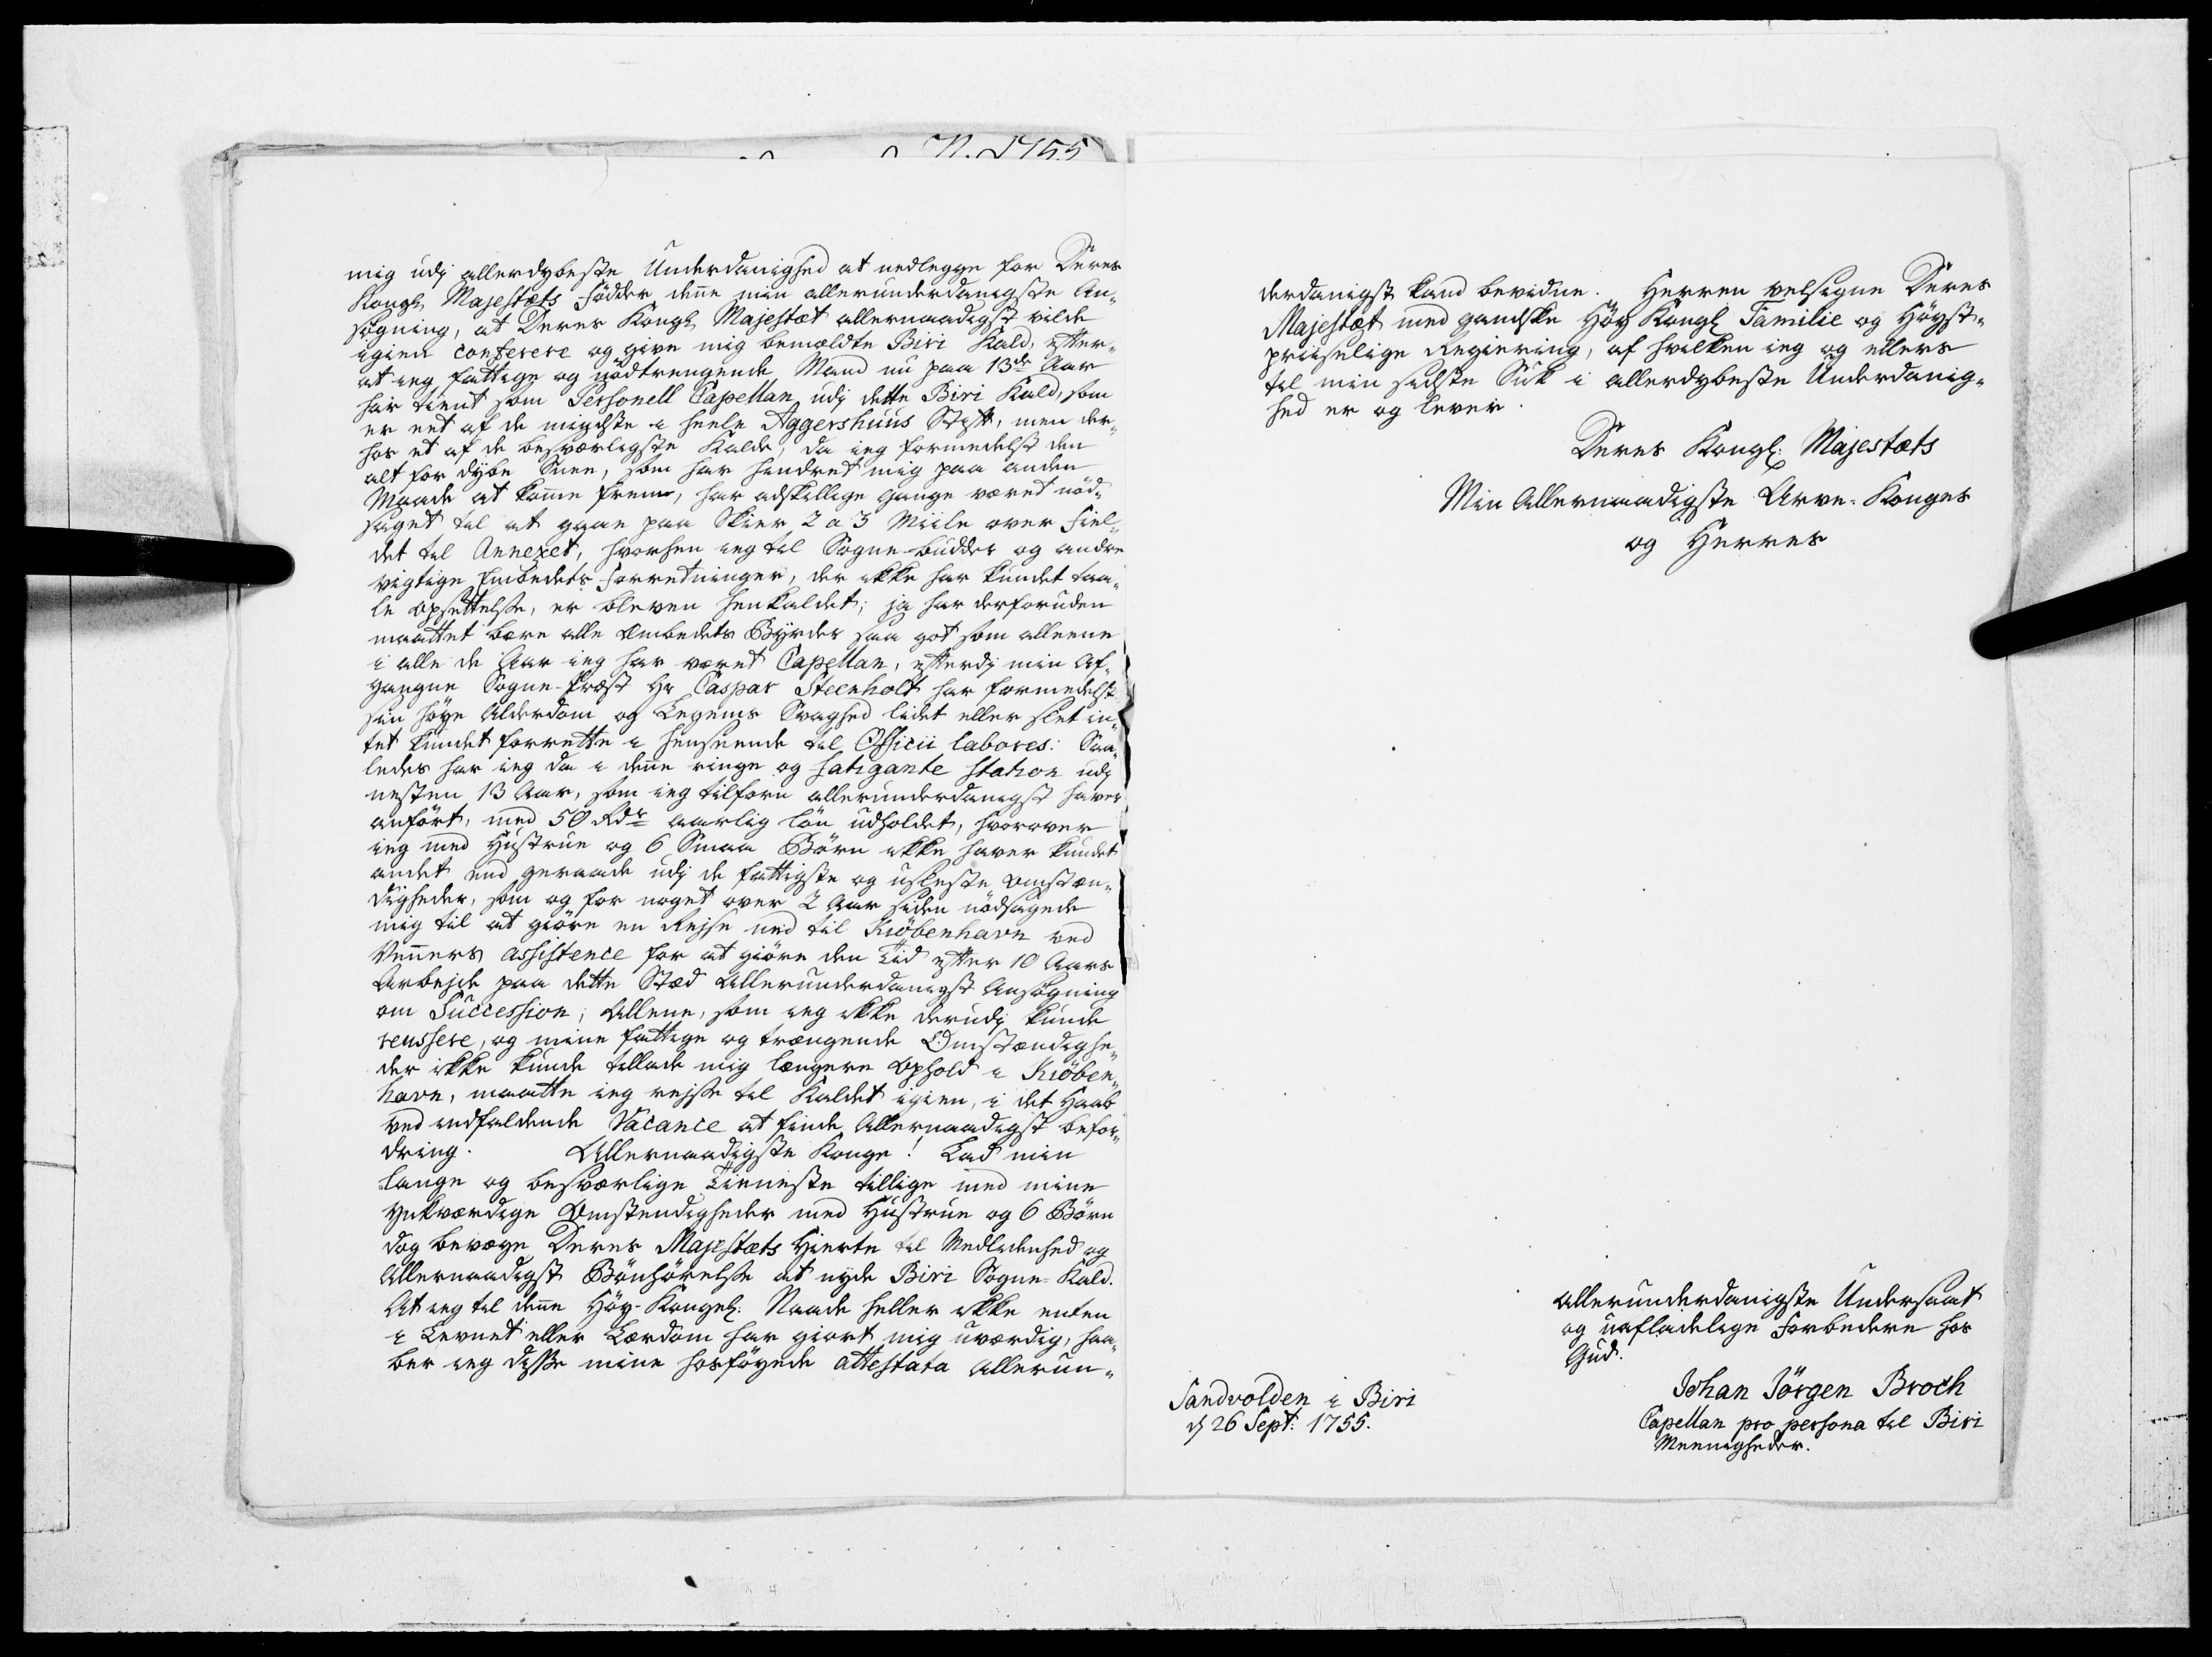 N. 1755
mig udj allerdybeste Underdanighed at nedlegge for Deres
Kongl. Majestæts Födder denne min allerunderdanigste An-
sögning, at Deres Kongl. Majestæt allernaadigst vilde
igien conferere og give mig bemældte Biri Kald, efter-
at ieg fattige og nödtrengende Mand nu paa 13de Aar
har tient som Personell Capellan udj dette Biri Kald, som
er eet af de mindste i heele Aggershuus Stift, men der-
hos et af de besværligste Kalde, da ieg formedelst den
alt for dybe Snee, som har hindret mig paa anden
Maade at komme frem, har adskillige gange været nöd-
saget til at gaae paa Skier 2 a 3 Miile over Fiel-
det til Annexet, hvorhen ieg til Sogne-budder og andre
vigtige Embedets Forretninger, der ikke har kundet taa-
le Opsettelse, er bleven henkaldet; ja har derforuden
maattet bære alle Embedets Byrder saa got som alleene
i alle de Aar ieg har været Capellan, efterdj min Af-
gangne Sogne-Præst Hr Caspar Steenholt har formedelst
sin höye Alderdom og Legems Svaghed lidet eller slet in-
tet kundet forrette i henseende til Officii labores: Saa-
ledes har ieg da i denne ringe og fatigante Station udj
nesten 13 Aar, som ieg tilforn allerunderdanigst haver
anfört, med 50 Rdr aarlig lön udholdet, hvorover
ieg med Hustrue og 6 Smaa Börn ikke haver kundet
andet end geraade udj de fattigste og usleste Omstæn-
digheder, som og for noget over 2 Aar siden nödsagede
mig til at giöre en Rejse ned til Kiöbenhavn ved
Venners assistence for at giöre den Tid efter 10 Aars
Arbejde paa dette Stæd allerunderdanigst Ansögning
om Succession; Allene, som ieg ikke derudj kunde
reussere, og mine fattige og trængende Omstændighe-
der ikke kunde tillade mig længere Ophold i Kiöben-
havn, maatte ieg rejse til Kaldet igien, i det Haab
ved indfaldende Vacance at finde Allernaadigst befor-
dring. Allernaadigste Konge! Lad min
lange og besværlige Tieneste tillige med mine
ynkværdige Omstendigheder med Hustrue og 6 Börn
dog bevæge Deres Majestæts Hierte til Medlidenhed og
Allernaadigst Bönhörelse at nyde Biri Sogne-Kald.
At ieg til denne Höy-Kongel. Naade heller ikke enten
i Levnet eller Lærdom har giort mig uværdig, haa-
ber ieg disse mine hosföyede attestata allerun-
derdanigst kand bevidne. Herren velsigne Deres
Majestæt med gandske Höy Kongl. Familie og Höyst-
priiselige Regiering, af hvilken ieg og ellers
til min sidste Suk i allerdybeste Underdanig-
hed er og lever.
Deres Kongl. Majestæts
Min Allernaadigste Arve-Konges
og Herres
allerunderdanigste Undersaat
og uafladelige Forbedere hos
Gud.
Johan Jörgen Broch
Capellan pro persona til Biri
Meenigheder.
Sandvolden i Biri
d 26 Sept: 1755.